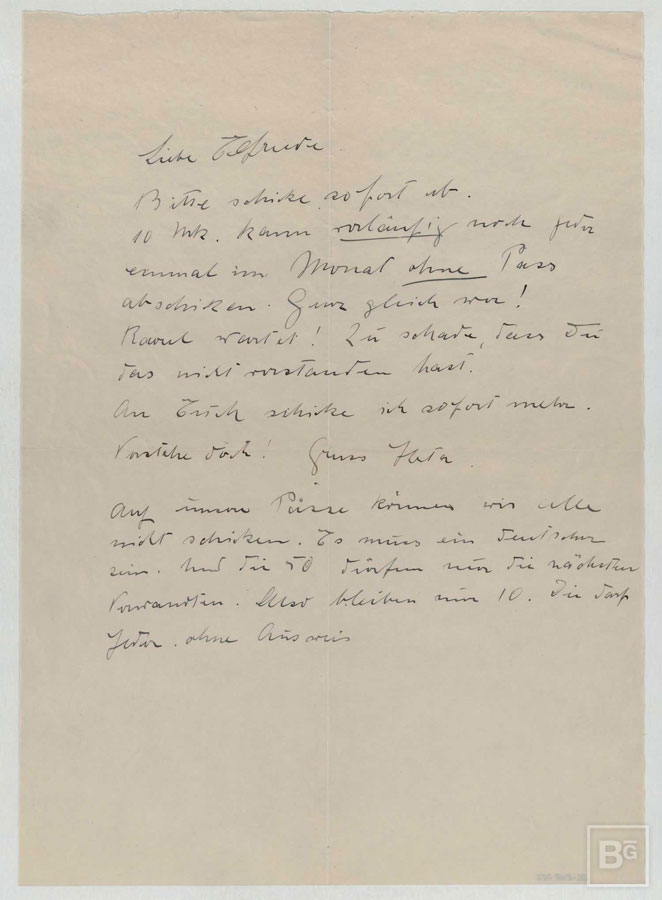 Liebe Elfriede.
Bitte schicke sofort ab.
10 Mk. kann vorläufig noch jeder
einmal im Monat ohne Pass
abschicken. Ganz gleich wer!
Raoul wartet! Zu schade, dass Du
das nicht verstanden hast.
An schicke ich sofort mehr.
Verstehe doch! Gruss
Auf unsere Pässe können wir alle
nicht schicken. Es muss ein deutscher
sein. Und die 50 dürfen nur die nächsten
Verwandten. Also bleiben nur 10. Die darf
Jeder. ohne Ausweis
BG